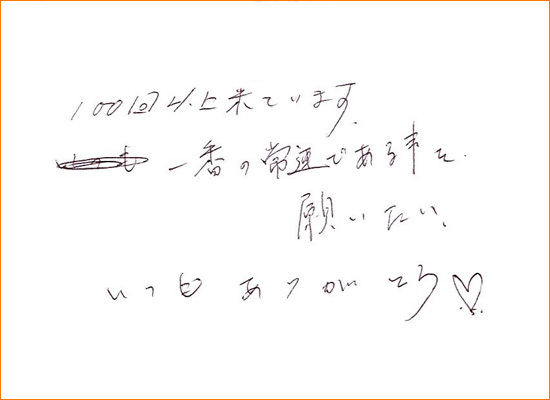 100回以上来ています。
一番の常連である事を、
願いたい。
いつもありがとう♡